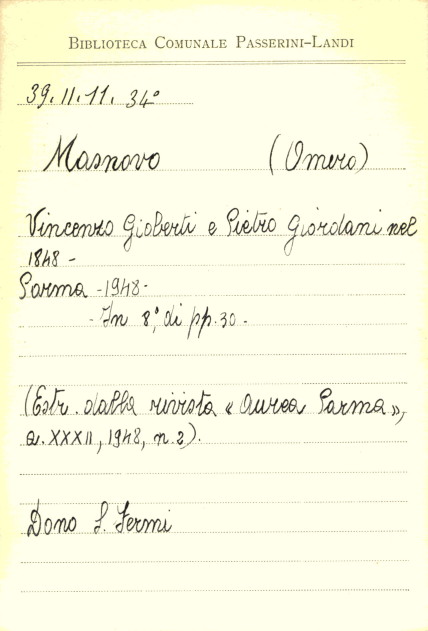 BIBLIOTECA COMUNALE PASSERINI-LANDI
39. II. 11. 34°
Masnovo (Omero)
Vincenzo Gioberti e Pietro Giordani nel
1848 -
Parma - 1948 -
- In 8°, di pp. 30 -
(Estr. dalla rivista « Aurea Parma »,
a. XXXII, 1948, n. 2).
Dono S. Fermi